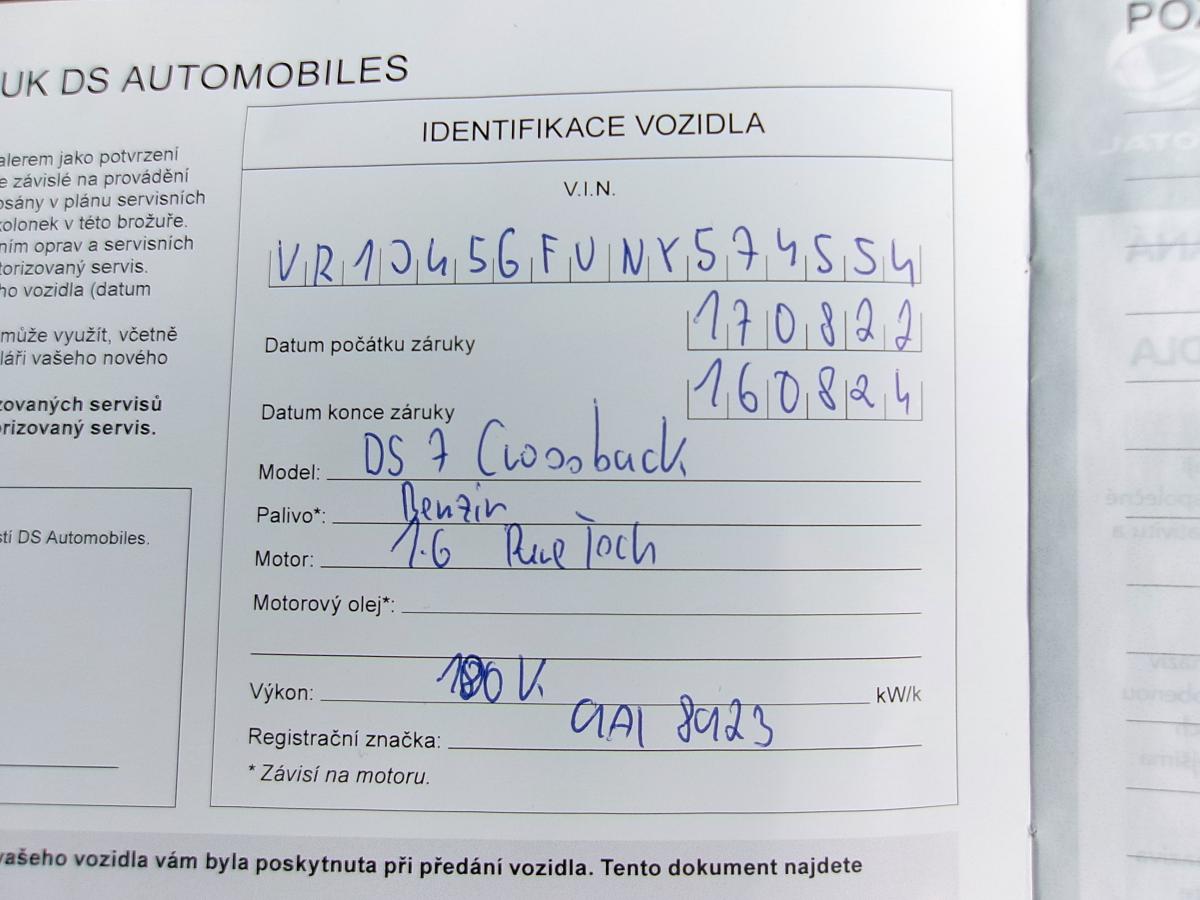 UK DS AUTOMOBILES
alerem jako potvrzení
e závislé na provádění
osány v plánu servisních
kolonek v této brožuře.
ním oprav a servisních
torizovaný servis.
ho vozidla (datum
může využít, včetně
láři vašeho nového
zovaných servisů
orizovaný servis.
stí DS Automobiles.
IDENTIFIKACE VOZIDLA
V.I.N.
VR1J45GFUNY574554
Datum počátku záruky 170822
Datum konce záruky 160824
Model: DS 7 Crossback
Palivo*: Benzin
Motor: 1.6 PureTech
Motorový olej*:
Výkon: 180 K kW/k
Registrační značka: 9AI 8923
* Závisí na motoru.
vašeho vozidla vám byla poskytnuta při předání vozidla. Tento dokument najdete